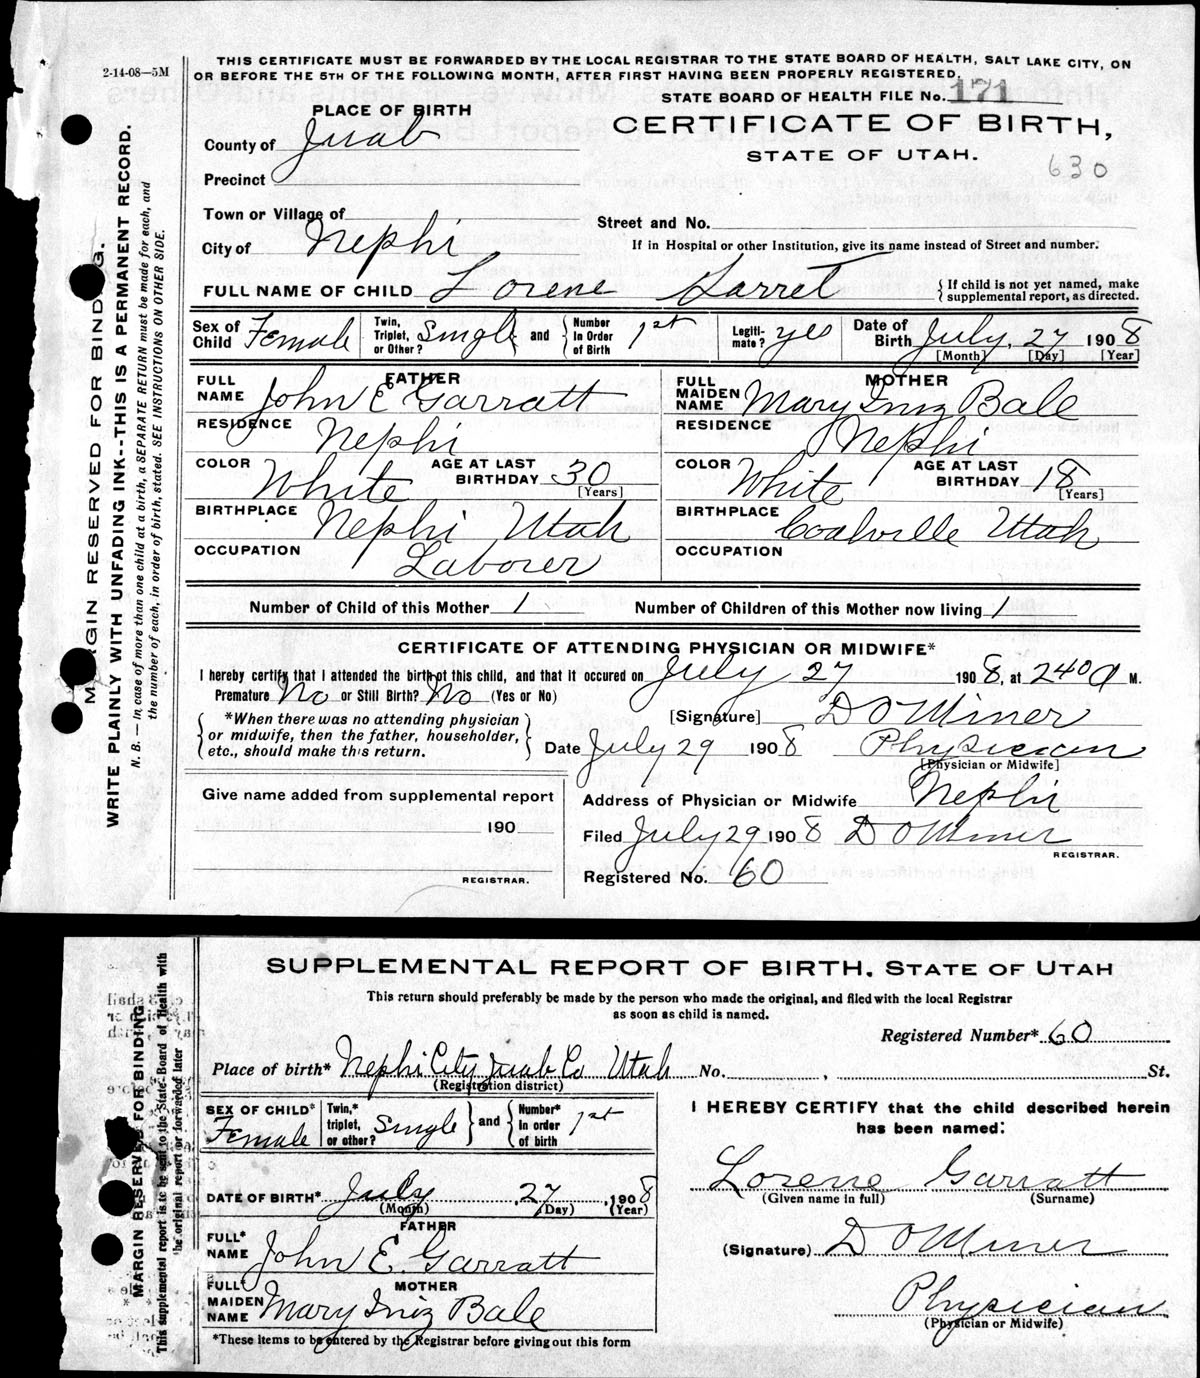 2-14-08—5M
THIS CERTIFICATE MUST BE FORWARDED BY THE LOCAL REGISTRAR TO THE STATE BOARD OF HEALTH, SALT LAKE CITY, ON
OR BEFORE THE 5TH OF THE FOLLOWING MONTH, AFTER FIRST HAVING BEEN PROPERLY REGISTERED.
STATE BOARD OF HEALTH FILE No. 171
CERTIFICATE OF BIRTH,
STATE OF UTAH.
630
PLACE OF BIRTH
County of Juab
Precinct
Town or Village of
Street and No.
City of Nephi
If in Hospital or other Institution, give its name instead of Street and number.
FULL NAME OF CHILD Lorene Garret { If child is not yet named, make supplemental report, as directed.
Sex of Child Female Twin, Triplet, or Other? Single and Number In Order of Birth 1st Legitimate? yes Date of Birth July 27 1908
[Month] [Day] [Year]
FATHER MOTHER
FULL NAME John E Garratt FULL MAIDEN NAME Mary Iniz Bale
RESIDENCE Nephi RESIDENCE Nephi
COLOR White AGE AT LAST BIRTHDAY 30 [Years] COLOR White AGE AT LAST BIRTHDAY 18 [Years]
BIRTHPLACE Nephi Utah BIRTHPLACE Coalville Utah
OCCUPATION Laborer OCCUPATION
Number of Child of this Mother 1 Number of Children of this Mother now living 1
CERTIFICATE OF ATTENDING PHYSICIAN OR MIDWIFE*
I hereby certify that I attended the birth of this child, and that it occured on July 27 1908, at 240 a M.
Premature No or Still Birth? No (Yes or No)
[Signature] D O Miner
{ *When there was no attending physician
or midwife, then the father, householder,
etc., should make this return. }
Date July 29 1908 Physician
[Physician or Midwife]
Give name added from supplemental report
190
REGISTRAR.
Address of Physician or Midwife Nephi
Filed July 29 1908 D O Miner
REGISTRAR.
Registered No. 60
MARGIN RESERVED FOR BINDING.
WRITE PLAINLY WITH UNFADING INK--THIS IS A PERMANENT RECORD.
N. B. — In case of more than one child at a birth, a SEPARATE RETURN must be made for each, and
the number of each, in order of birth, stated. SEE INSTRUCTIONS ON OTHER SIDE.
SUPPLEMENTAL REPORT OF BIRTH, STATE OF UTAH
This return should preferably be made by the person who made the original, and filed with the local Registrar
as soon as child is named.
Registered Number* 60
Place of birth* Nephi City Juab Co Utah No. , St.
(Registration district)
SEX OF CHILD* Female Twin,* triplet, or other? Single and Number* In order of birth 1st
DATE OF BIRTH* July 27, 1908
(Month) (Day) (Year)
FATHER
FULL* NAME John E. Garratt
MOTHER
FULL* MAIDEN NAME Mary Iniz Bale
*These items to be entered by the Registrar before giving out this form
I HEREBY CERTIFY that the child described herein
has been named:
Lorene Garratt
(Given name in full) (Surname)
(Signature) D O Miner
Physician
(Physician or Midwife)
MARGIN RESERVED FOR BINDING
This supplemental report is to be sent to the State Board of Health with
the original report or forwarded later